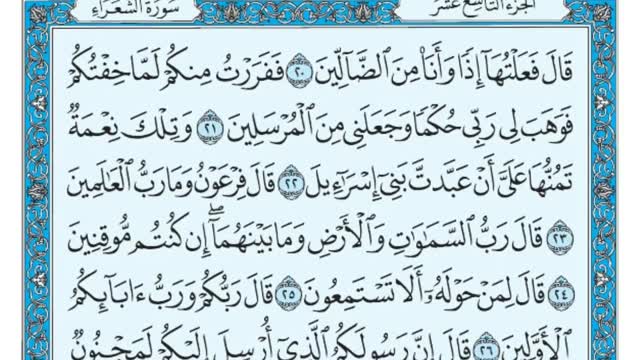 سُورَةُ الشُّعَرَاءِ
الجُزْءُ التَّاسِعُ عَشَرَ
قَالَ فَعَلْتُهَآ إِذًا وَأَنَا۠ مِنَ ٱلضَّآلِّينَ ٢٠ فَفَرَرْتُ مِنكُمْ لَمَّا خِفْتُكُمْ
فَوَهَبَ لِى رَبِّى حُكْمًا وَجَعَلَنِى مِنَ ٱلْمُرْسَلِينَ ٢١ وَتِلْكَ نِعْمَةٌ
تَمُنُّهَا عَلَىَّ أَنْ عَبَّدتَّ بَنِىٓ إِسْرَٰٓءِيلَ ٢٢ قَالَ فِرْعَوْنُ وَمَا رَبُّ ٱلْعَٰلَمِينَ
٢٣ قَالَ رَبُّ ٱلسَّمَٰوَٰتِ وَٱلْأَرْضِ وَمَا بَيْنَهُمَآ ۖ إِن كُنتُم مُّوقِنِينَ
٢٤ قَالَ لِمَنْ حَوْلَهُۥٓ أَلَا تَسْتَمِعُونَ ٢٥ قَالَ رَبُّكُمْ وَرَبُّ ءَابَآئِكُمُ
ٱلْأَوَّلِينَ ٢٦ قَالَ إِنَّ رَسُولَكُمُ ٱلَّذِىٓ أُرْسِلَ إِلَيْكُمْ لَمَجْنُونٌ